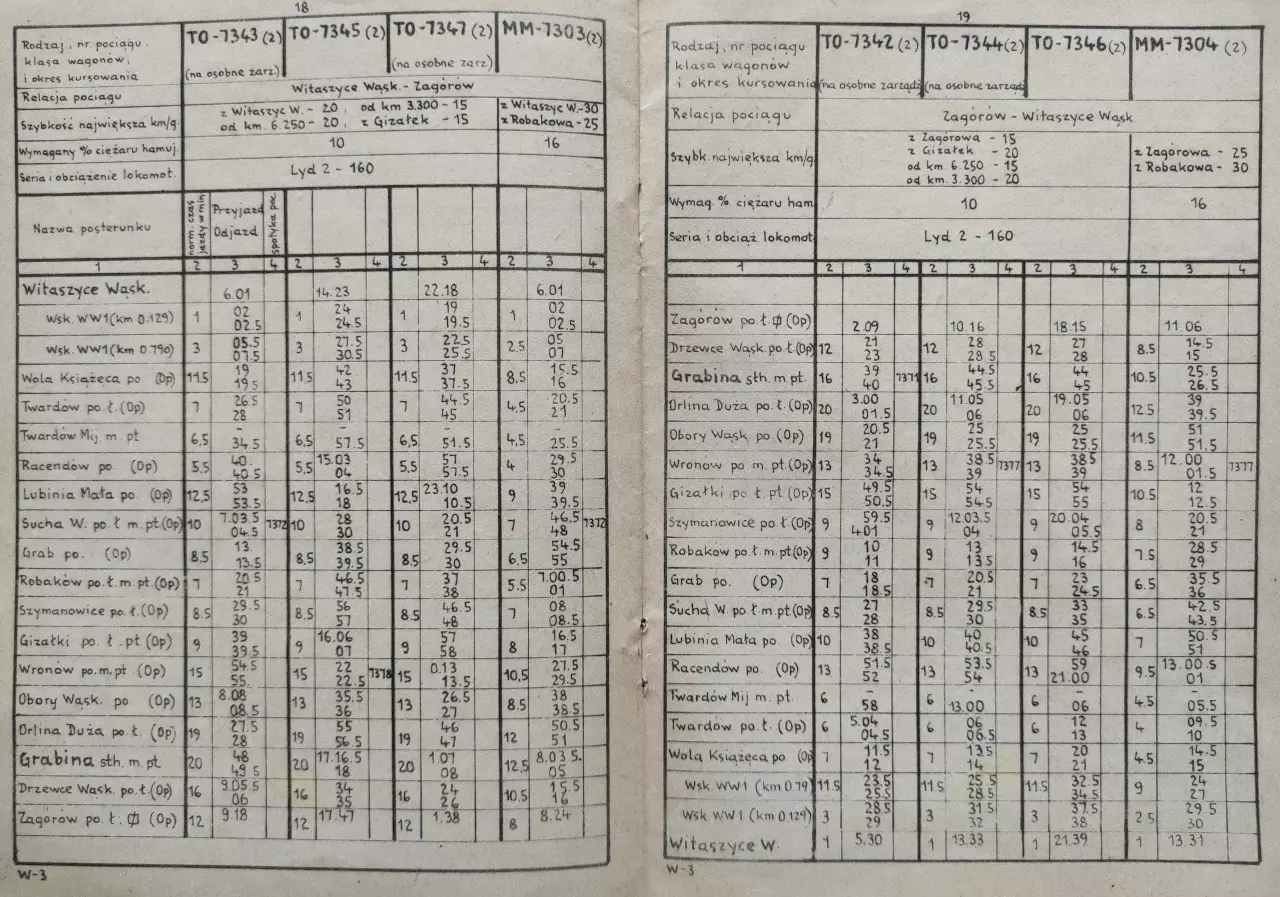 18
Rodzaj, nr. pociągu,
klasa wagonów,
i okres kursowania
TO-7343 (2) TO-7345 (2) TO-7347 (2) MM-7303 (2)
(na osobne zarz.) (na osobne zarz.)
Relacja pociągu Witaszyce Wąsk. - Zagórów
Szybkość największa km/g
z Witaszyc W. - 20, od km 3.300 - 15
od km. 6.250 - 20, z Gizałek - 15
z Witaszyc W. - 30
z Robakowa - 25
Wymagany % ciężaru hamuj. 10 16
Seria i obciążenie lokomot. Lyd 2 - 160
Nazwa posterunku
norm. czas jazdy w min
Przyjazd
Odjazd
spotyka poc.
1 2 3 4 2 3 4 2 3 4 2 3 4
Witaszyce Wąsk. 6.01 14.23 22.18 6.01
Wsk. WW1 (km 0.129) 1 02 1 24 1 19 1 02
02.5 24.5 19.5 02.5
Wsk. WW1 (km 0.790) 3 05.5 3 27.5 3 22.5 2.5 05
07.5 30.5 25.5 07
Wola Książęca po (Op) 11.5 19 11.5 42 11.5 37 8.5 15.5
19.5 43 37.5 16
Twardów po ł. (Op) 7 26.5 7 50 7 44.5 4,5 20.5
28 51 45 21
Twardów Mij m. pt 6,5 - 6,5 - 6,5 - 4,5 -
34.5 57.5 51.5 25.5
Racendów po (Op) 5,5 40. 5,5 15.03 5,5 57 4 29.5
40.5 04 57.5 30
Lubinia Mała po. (Op) 12,5 53 12,5 16.5 12,5 23.10 9 39
53.5 18 10.5 39.5
Sucha W. po. ł m. pt. (Op) 10 7.03.5 7372 10 28 10 20.5 7 46.5 7372
04.5 30 21 48
Grab po. (Op) 8,5 13. 8,5 38.5 8,5 29.5 6,5 54.5
13.5 39.5 30 55
Robaków po. ł. m. pt. (Op) 7 20.5 7 46.5 7 37 5.5 7.00.5
21 47.5 38 01
Szymanowice po. ł. (Op) 8.5 29.5 8.5 56 8.5 46.5 7 08
30 57 48 08.5
Gizałki po. ł. pt (Op) 9 39 9 16.06 9 57 8 16.5
39.5 07 58 17
Wronów po. m. pt (Op) 15 54.5 15 22 7378 15 0.13 10,5 27.5
55. 22.5 13.5 29.5
Obory Wąsk. po (Op) 13 8.08 13 35.5 13 26.5 8.5 38
08.5 36 27 38.5
Orlina Duża po. ł. (Op) 19 27.5 19 55 19 46 12 50.5
28 56.5 47 51
Grabina sth. m. pt 20 48 20 17.16.5 20 1.07 12,5 8.03 5.
49.5 18 08 05
Drzewce Wąsk. po. ł. (Op) 16 9.05.5 16 34 16 24 10.5 15.5
06 35 26 16
Zagórów po ł. (Op) 12 9.18 12 17.47 12 1.38 8 8.24
W-3
19
Rodzaj, nr pociągu
klasa wagonów
i okres kursowania
TO-7342 (2) TO-7344 (2) TO-7346 (2) MM-7304 (2)
(na osobne zarządz (na osobne zarządz
Relacja pociągu Zagórów - Witaszyce Wąsk
Szybk. największa km/g
z Zagórowa - 15
z Gizałek - 20
od km. 6.250 - 15
od km. 3.300 - 20
z Zagorowa - 25
z Robakowa - 30
Wymag. % ciężaru ham 10 16
Seria i obciąż lokomot Lyd 2 - 160
1 2 3 4 2 3 4 2 3 4 2 3 4
Zagórów po. ł. (Op) 2.09 10.16 18.15 11.06
Drzewce Wąsk. po ł. (Op) 12 21 12 28 12 27 8.5 14.5
23 28.5 28 15
Grabina sth. m. pt. 16 39 7371 16 44.5 16 44 10.5 25.5
40 45.5 45 26.5
Orlina Duża po. ł. (Op) 20 3.00 20 11.05 20 19.05 12.5 39
01.5 06 06 39.5
Obory Wąsk po. (Op) 19 20.5 19 25 19 25 11.5 51
21 25.5 25.5 51.5
Wronow po m. pt. (Op) 13 34 13 38.5 7377 13 38.5 8.5 12.00 7377
34.5 39 39 01.5
Gizałki po ł. pt (Op) 15 49.5 15 54 15 54 10.5 12
50.5 54.5 55 12.5
Szymanowice po. ł. (Op) 9 59.5 9 12.03.5 9 20.04 8 20.5
4.01 04 05.5 21
Robaków po ł. m. pt. (Op) 9 10 9 13 9 14.5 7.5 28.5
11 13.5 16 29
Grab po. (Op) 7 18 7 20.5 7 23 6.5 35.5
18.5 21 24.5 36
Sucha W. po ł m pt (Op) 8.5 27 8.5 29.5 8.5 33 6.5 42.5
28 30 35 43.5
Lubinia Mała po (Op) 10 38 10 40 10 45 7 50.5
38.5 40.5 46 51
Racendów po. (Op) 13 51.5 13 53.5 13 59 9.5 13.00.5
52 54 21.00 01
Twardów Mij m. pt. 6 - 6 - 6 - 4.5 -
58 13.00 06 05.5
Twardów po. ł. (Op) 6 5.04 6 06 6 12 4 09.5
04.5 06.5 13 10
Wola Książęca po (Op 7 11.5 7 13.5 7 20 4.5 14.5
12 14 21 15
Wsk. WW1 (km 0.79) 11.5 23.5 11.5 25.5 11.5 32.5 9 24
25.5 28.5 34.5 27
Wsk. WW1 (km 0.129) 3 28.5 3 31.5 3 37.5 2.5 29.5
29 32 38 30
Witaszyce W. 1 5.30 1 13.33 1 21.39 1 13.31
W-3